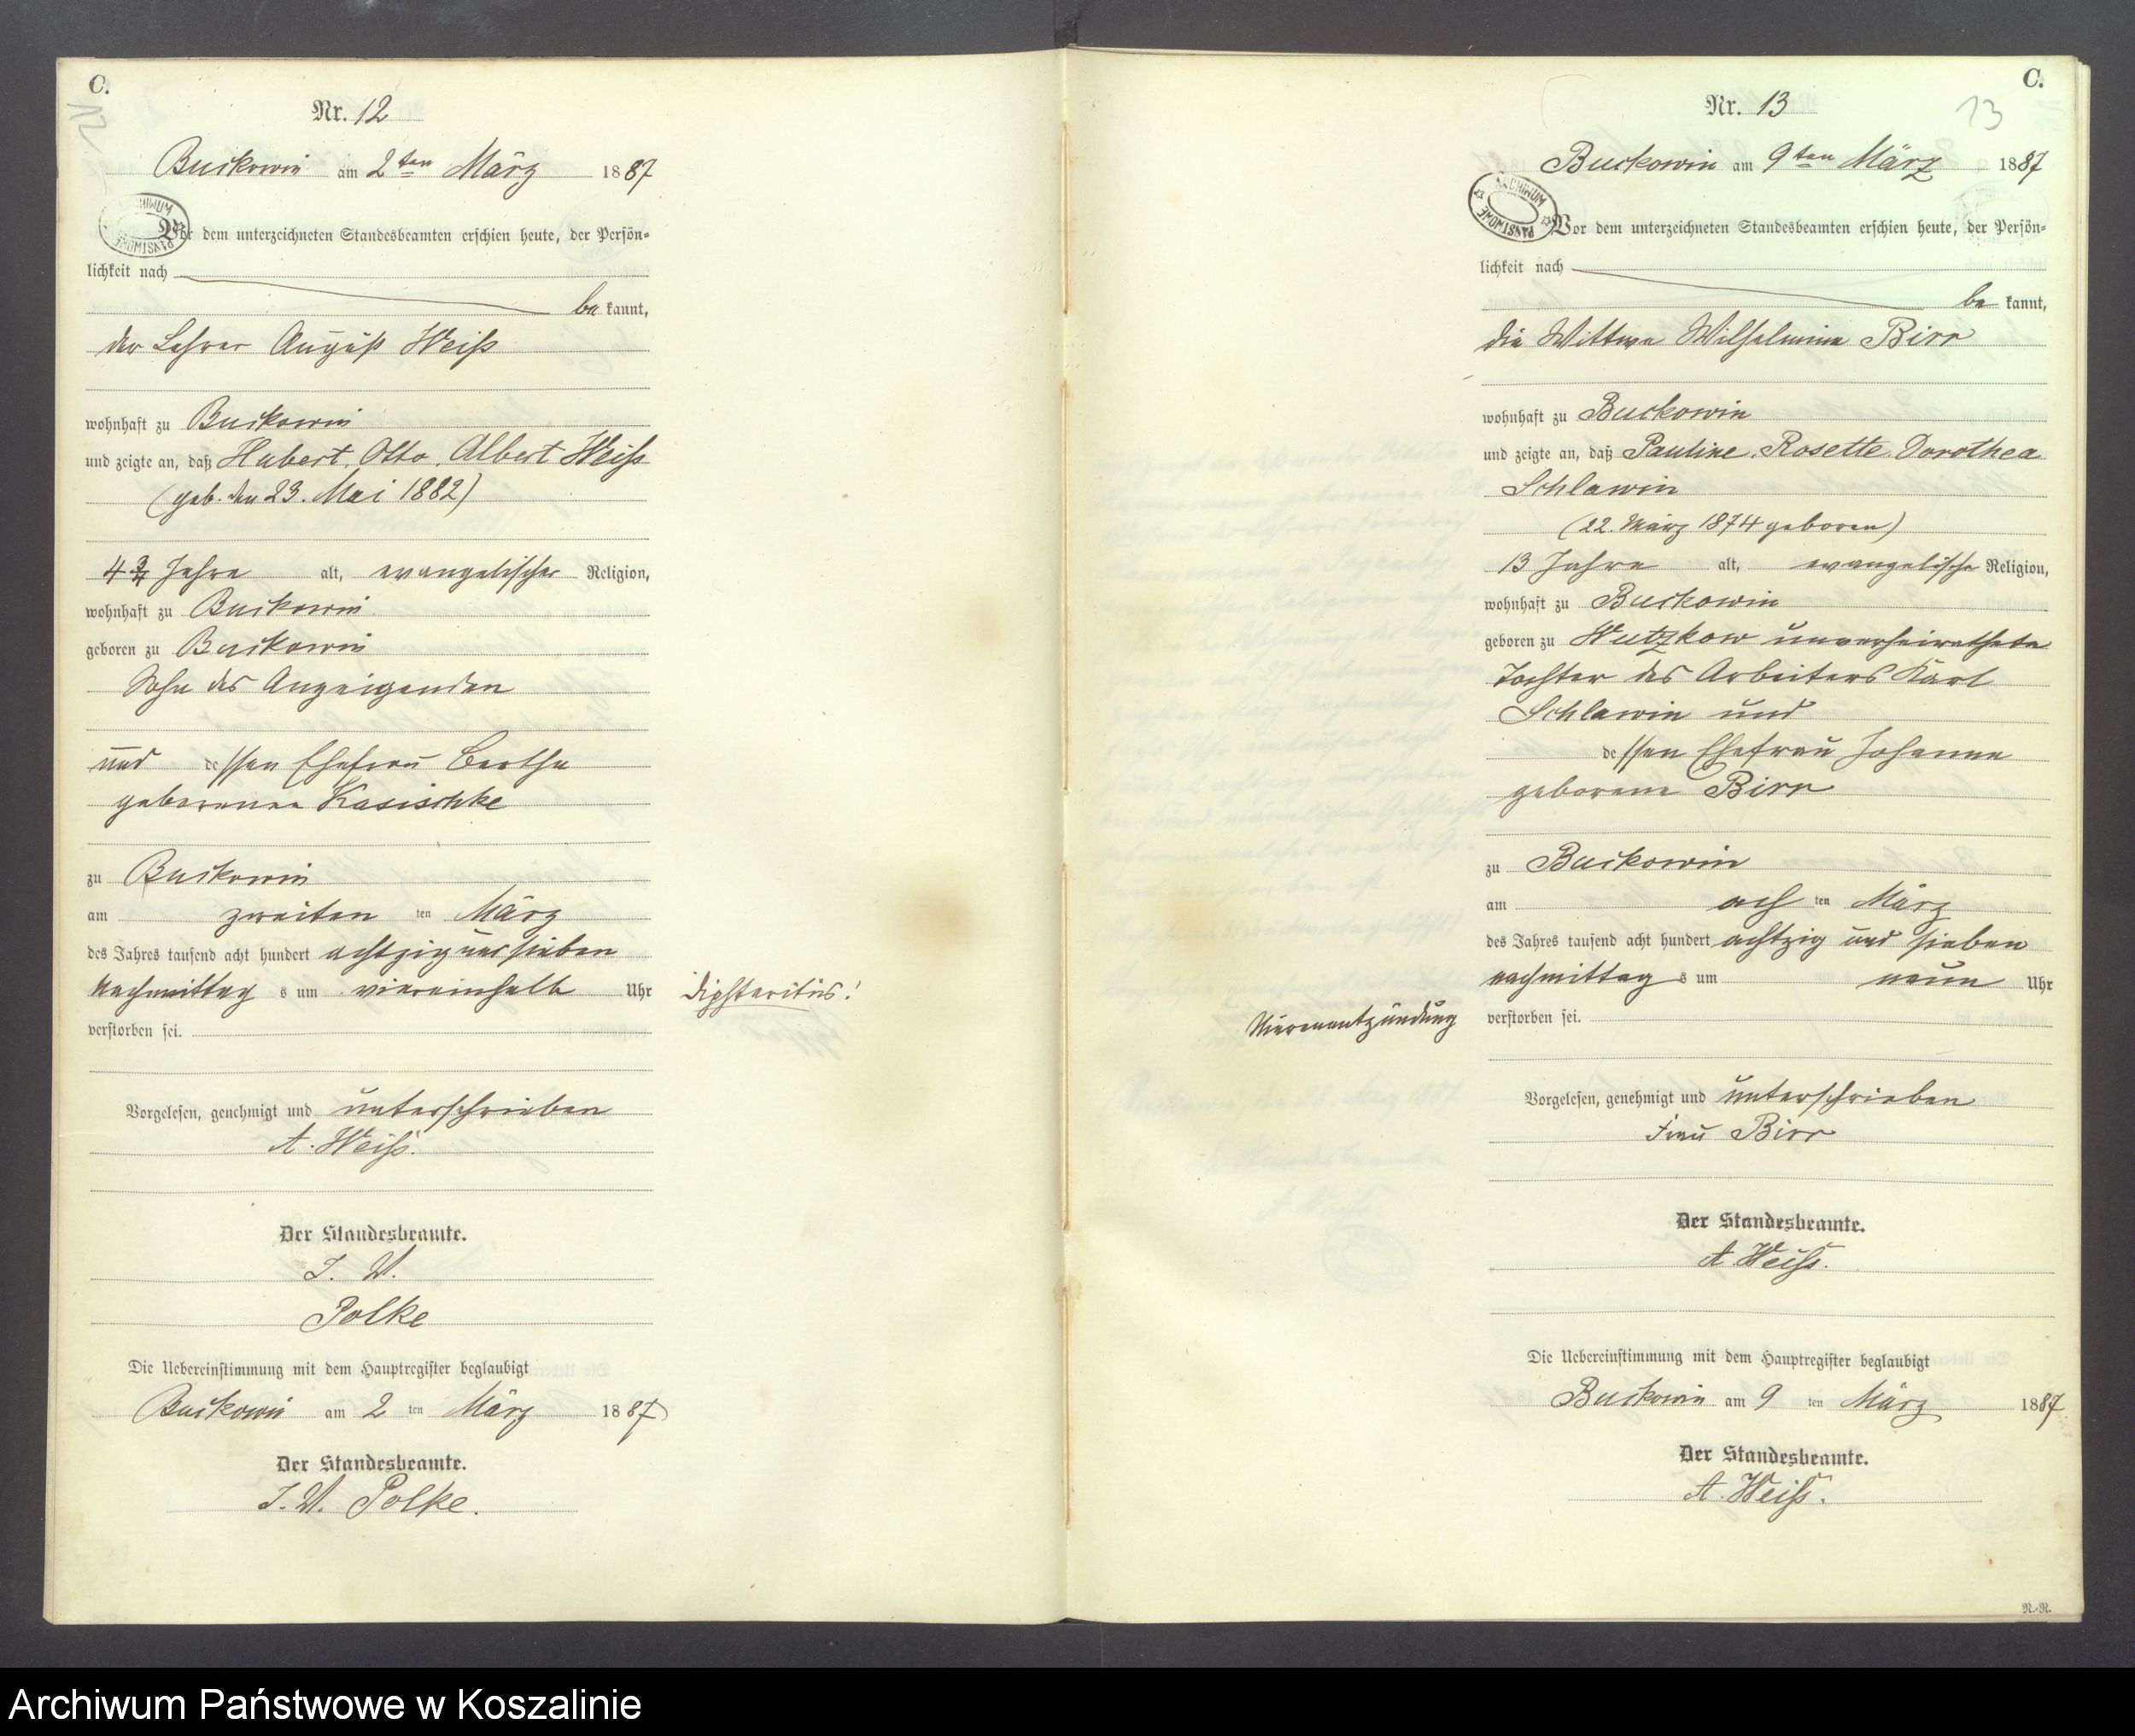 C.
12
Nr. 12
Buckowin am 2ten März 1887
ARCHIWUM PAŃSTWOWE
Vor dem unterzeichneten Standesbeamten erschien heute, der Persön-
lichkeit nach
be kannt,
der Lehrer August Weiß
wohnhaft zu Buckowin
und zeigte an, daß Hubert, Otto, Albert Weiß
(geb. den 23. Mai 1882)
4 3/4 Jahre alt, evangelischer Religion,
wohnhaft zu Buckowin
geboren zu Buckowin
Sohn des Anzeigenden
und dessen Ehefrau Bertha
geborenen Kasischke
zu Buckowin
am zweiten ten März
des Jahres tausend acht hundert achtzig und sieben
Nachmittag s um viereinhalb Uhr
diphteritis!
verstorben sei.
Vorgelesen, genehmigt und unterschrieben
A. Weiß.
Der Standesbeamte.
I. V.
Polke
Die Uebereinstimmung mit dem Hauptregister beglaubigt
Buckowin am 2 ten März 1887
Der Standesbeamte.
I. V. Polke.
C.
13
Nr. 13
Buckowin am 9ten März 1887
ARCHIWUM PAŃSTWOWE
Vor dem unterzeichneten Standesbeamten erschien heute, der Persön-
lichkeit nach
be kannt,
die Wittwe Wilhelmine Birr
wohnhaft zu Buckowin
und zeigte an, daß Pauline, Rosette, Dorothea
Schlawin
(22. März 1874 geboren)
13 Jahre alt, evangelische Religion,
wohnhaft zu Buckowin
geboren zu Wutzkow unverheirathete
Tochter des Arbeiters Karl
Schlawin und
dessen Ehefrau Johanne
geborene Birr
zu Buckowin
am ach ten März
des Jahres tausend acht hundert achtzig und sieben
nachmittag s um neun Uhr
Nierenentzündung
verstorben sei.
Vorgelesen, genehmigt und unterschrieben
Frau Birr
Der Standesbeamte.
A. Weiß.
Die Uebereinstimmung mit dem Hauptregister beglaubigt
Buckowin am 9 ten März 1887
Der Standesbeamte.
A. Weiß.
R.-R.
Archiwum Państwowe w Koszalinie